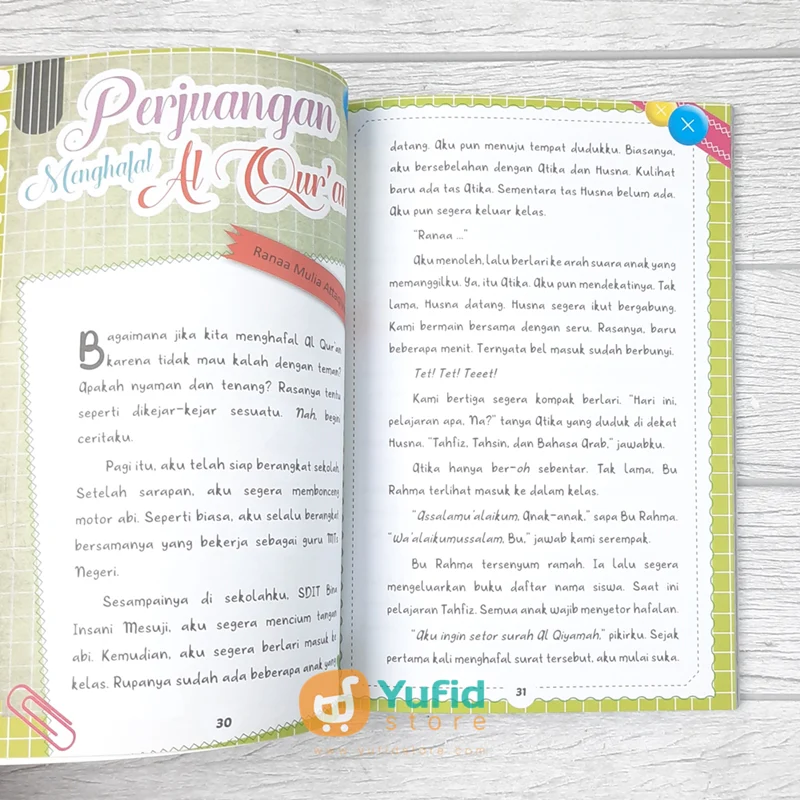 Perjuangan
Menghafal Al Qur'an
Ranaa Mulia
Bagaimana jika kita menghafal Al Qur'an
karena tidak mau kalah dengan teman?
Apakah nyaman dan tenang? Rasanya tentu
seperti dikejar-kejar sesuatu. Nah, begini
ceritaku.
Pagi itu, aku telah siap berangkat sekolah.
Setelah sarapan, aku segera membonceng
motor abi. Seperti biasa, aku selalu berangkat
bersamanya yang bekerja sebagai guru MTs
Negeri.
Sesampainya di sekolahku, SDIT Bina
Insani Mesuji, aku segera mencium tangan
abi. Kemudian, aku segera berlari masuk ke
kelas. Rupanya sudah ada beberapa anak yang
30
datang. Aku pun menuju tempat dudukku. Biasanya,
aku bersebelahan dengan Atika dan Husna. Kulihat
baru ada tas Atika. Sementara tas Husna belum ada.
Aku pun segera keluar kelas.
"Ranaa ..."
Aku menoleh, lalu berlari ke arah suara anak yang
memanggilku. Ya, itu Atika. Aku pun mendekatinya. Tak
lama, Husna datang. Husna segera ikut bergabung.
Kami bermain bersama dengan seru. Rasanya, baru
beberapa menit. Ternyata bel masuk sudah berbunyi.
Tet! Tet! Teeet!
Kami bertiga segera kompak berlari. "Hari ini,
pelajaran apa, Na?" tanya Atika yang duduk di dekat
Husna. "Tahfiz, Tahsin, dan Bahasa Arab," jawabku.
Atika hanya ber-oh sebentar. Tak lama, Bu
Rahma terlihat masuk ke dalam kelas.
"Assalamu'alaikum, Anak-anak," sapa Bu Rahma.
"Wa'alaikumussalam, Bu," jawab kami serempak.
Bu Rahma tersenyum ramah. Ia lalu segera
mengeluarkan buku daftar nama siswa. Saat ini
pelajaran Tahfiz. Semua anak wajib menyetor hafalan.
"Aku ingin setor surah Al Qiyamah," pikirku. Sejak
pertama kali menghafal surat tersebut, aku mulai suka.
31
Yufid
store